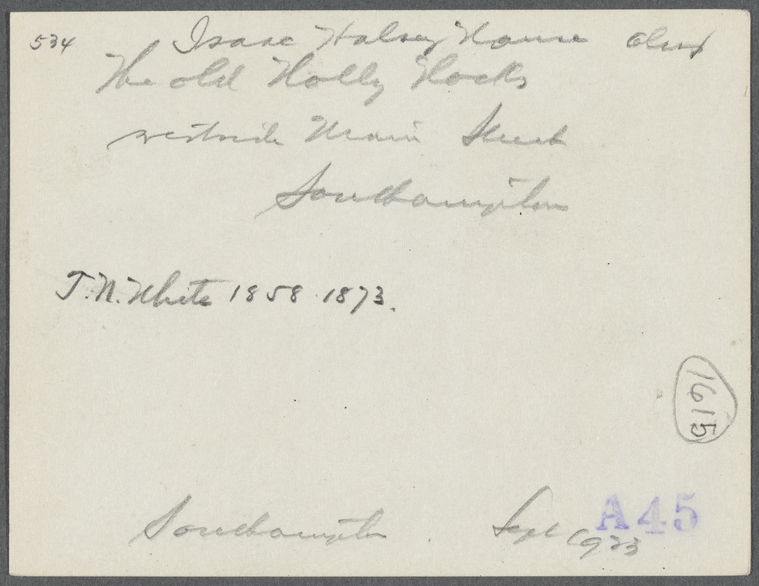 534 Isaac Halsey House
The old Holly Hocks
westside Main Street
Southampton
J.N. White 1858 1873.
1615
Southampton Sept 1923
A45